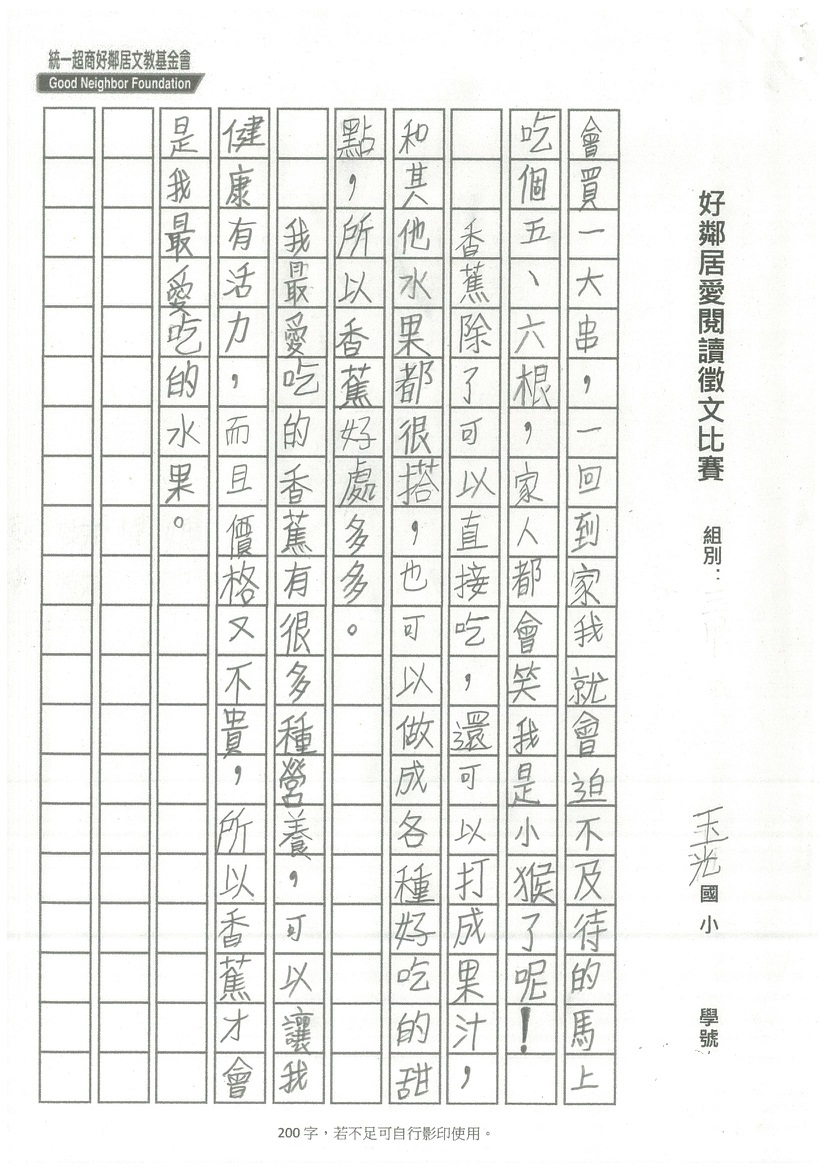 統一超商好鄰居文教基金會
Good Neighbor Foundation
好鄰居愛閱讀徵文比賽 組別： 玉光國小 學號
會買一大串，一回到家我就會迫不及待的馬上
吃個五、六根，家人都會笑我是小猴了呢！
香蕉除了可以直接吃，還可以打成果汁，
和其他水果都很搭，也可以做成各種好吃的甜
點，所以香蕉好處多多。
我最愛吃的香蕉有很多種營養，可以讓我
健康有活力，而且價格又不貴，所以香蕉才會
是我最愛吃的水果。
200 字，若不足可自行影印使用。